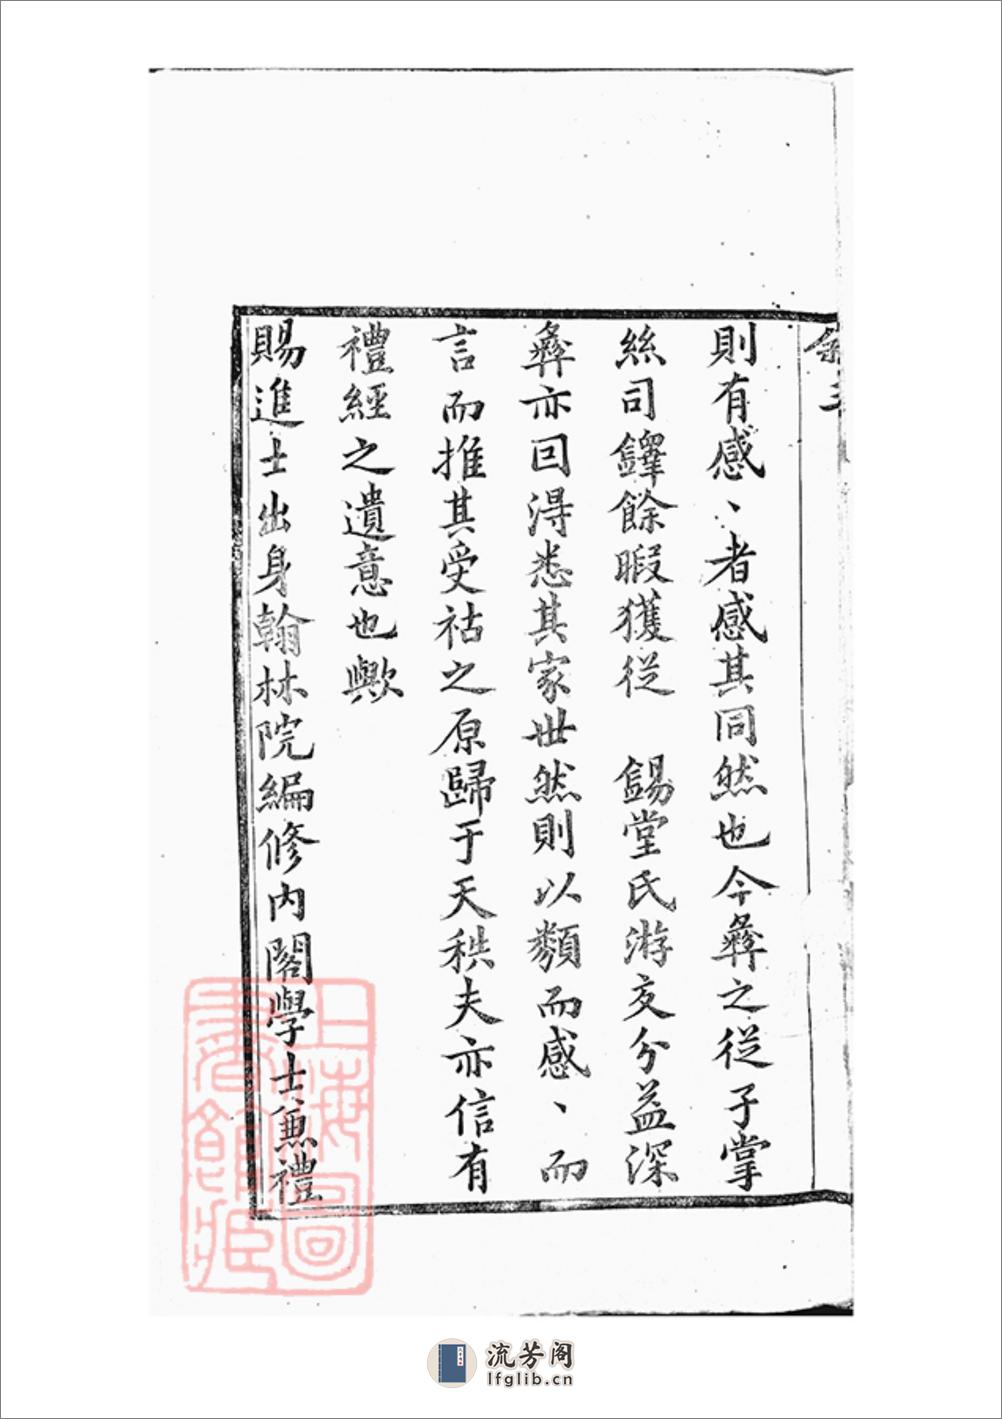 則有感、者感其同然也今彝之從子掌
絲司鐸餘暇獲從 錫堂氏游交分益深
彝亦回淂悉其家世然則以類而感、而
言而推其受祜之原歸于天秩夫亦信有
禮經之遺意也歟
賜進士出身翰林院編修內閣學士兼禮
上海圖書館藏
流芳阁
lfglib.cn